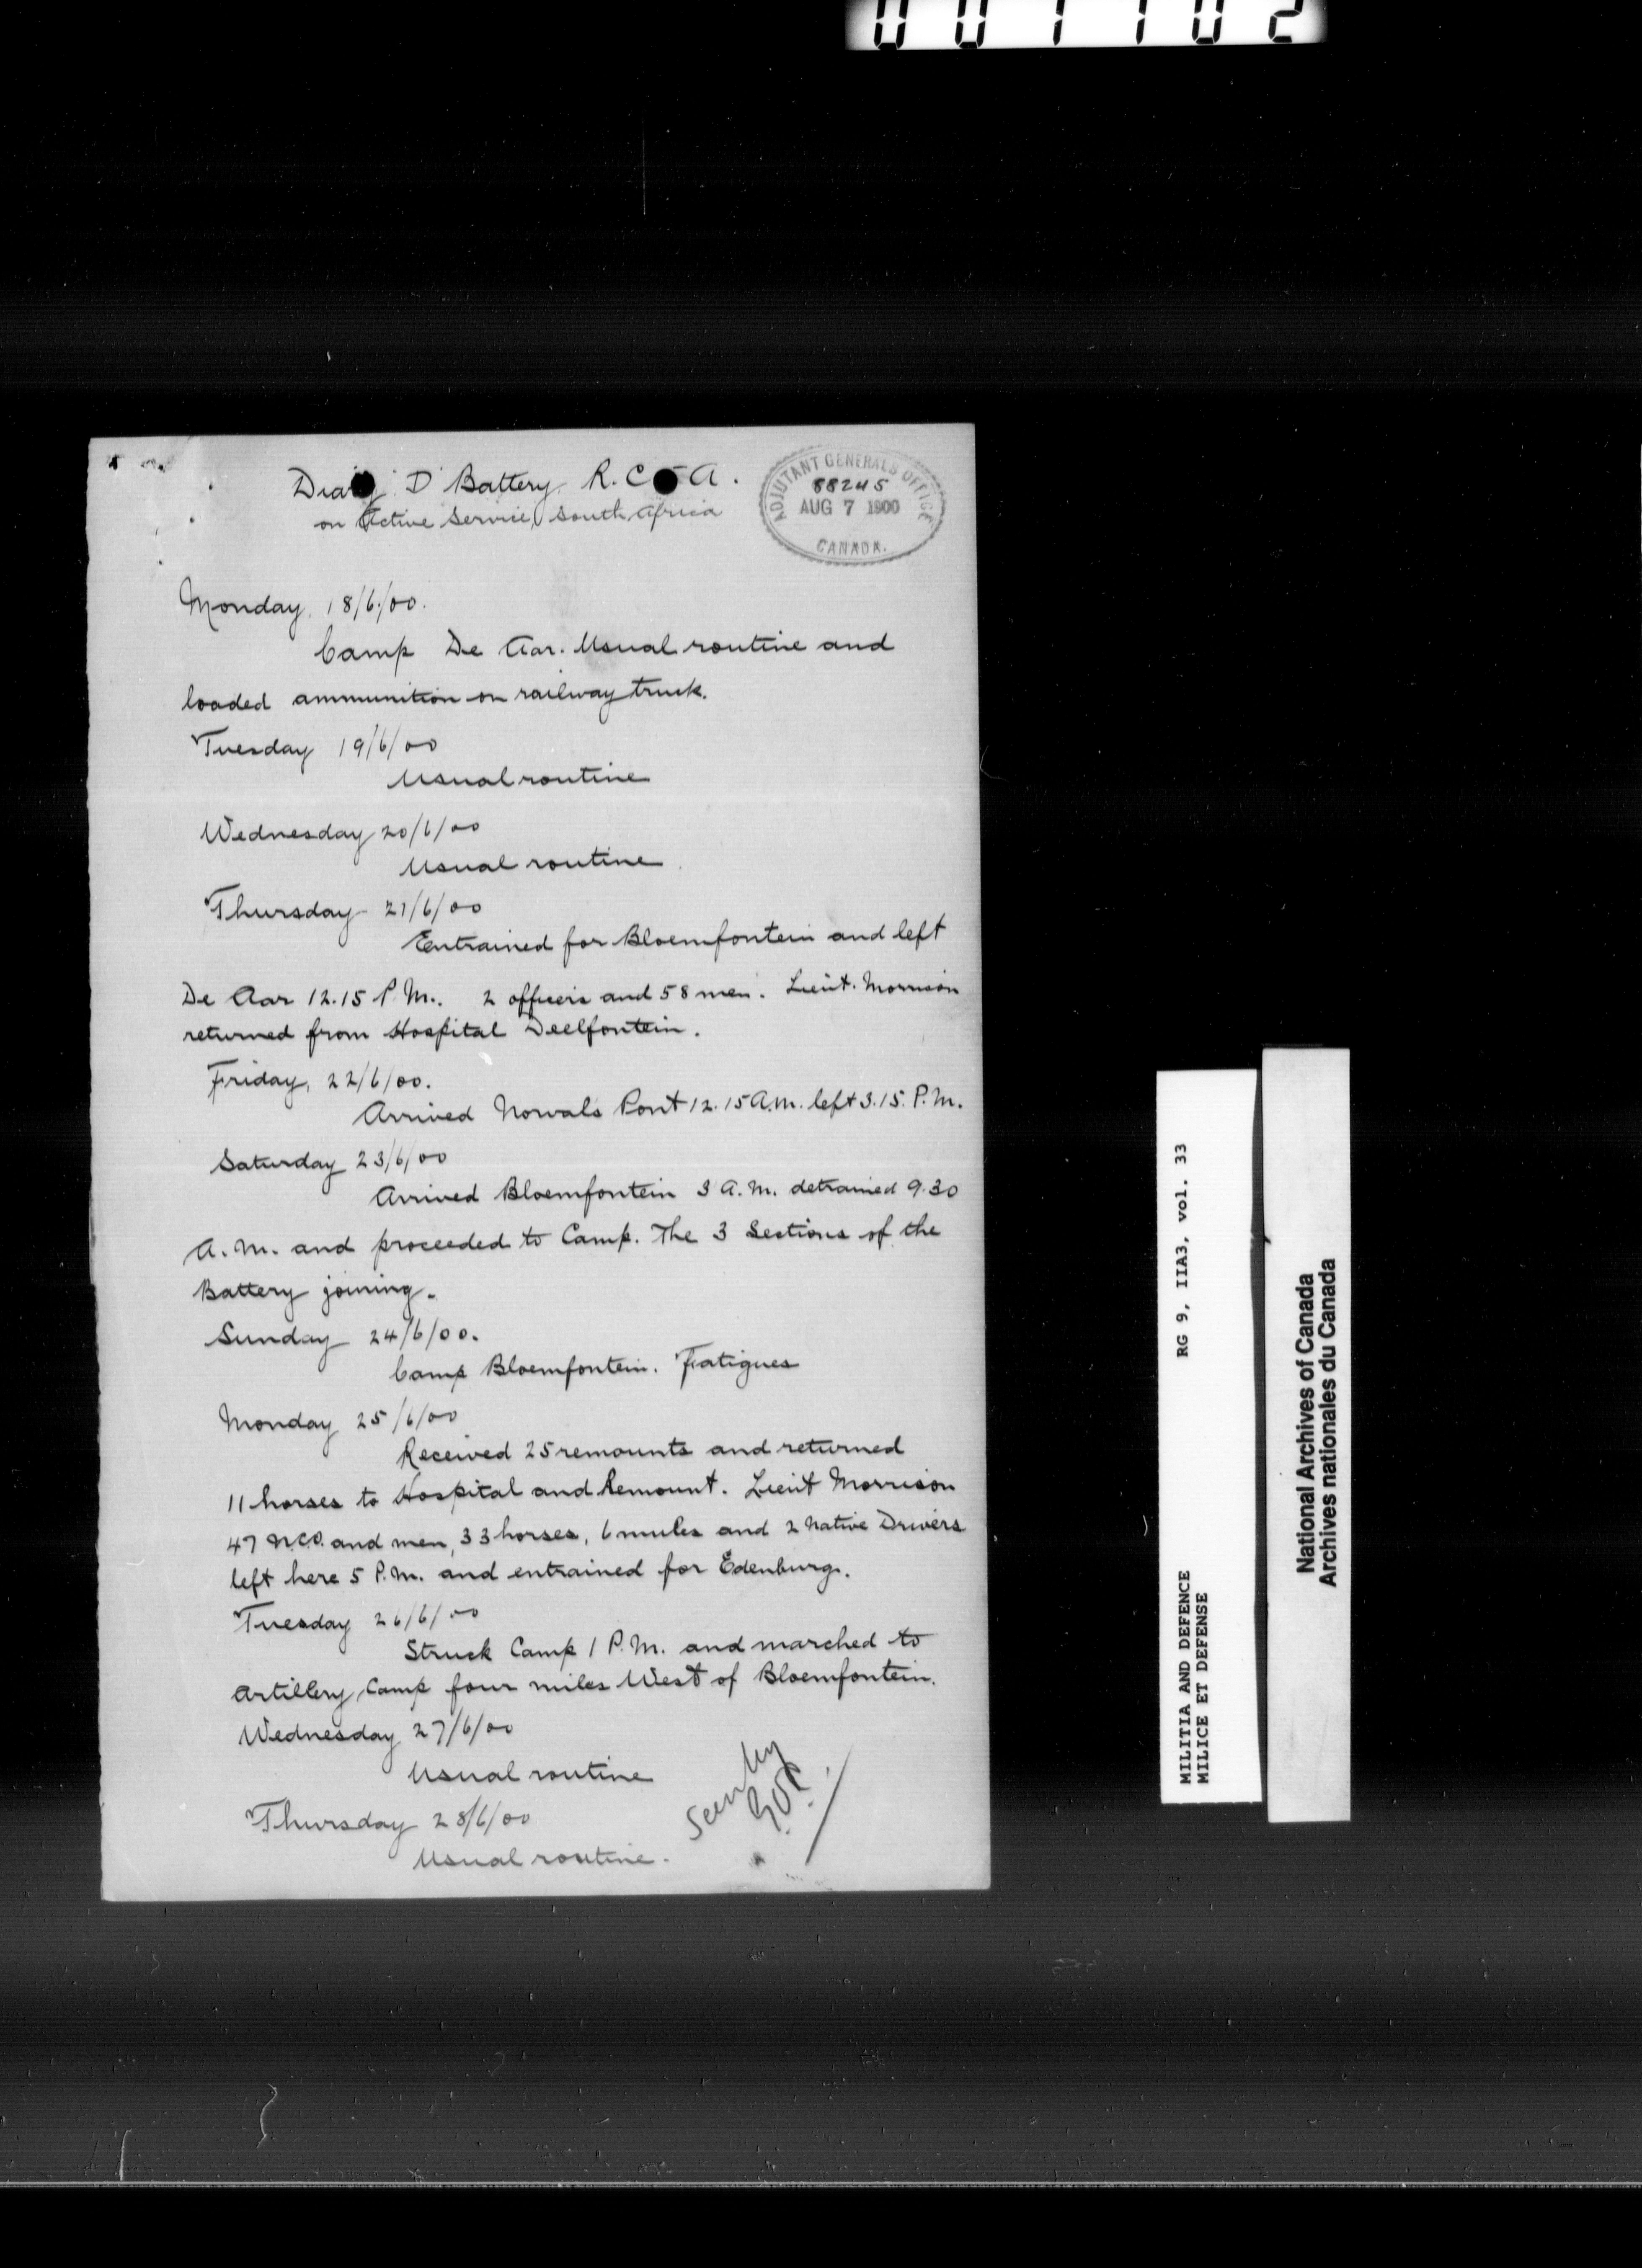 001102
Diary 'D' Battery R.C.A.
on Active Service, South Africa
ADJUTANT GENERALS OFFICE
88245
AUG 7 1900
CANADA.
Monday, 18/6/00.
Camp De Aar. Usual routine and
loaded ammunition on railway truck.
Tuesday 19/6/00
Usual routine
Wednesday 20/6/00
Usual routine
Thursday 21/6/00
Entrained for Bloemfontein and left
De Aar 12.15 P.M.. 2 officers and 58 men. Lieut. Morrison
returned from Hospital Deelfontein.
Friday, 22/6/00.
Arrived Norvals Pont 12.15 A.M. left 3.15. P.M.
Saturday 23/6/00
Arrived Bloemfontein 3 A.M. detrained 9.30
A.M. and proceeded to Camp. The 3 Sections of the
Battery joining.
Sunday 24/6/00.
Camp Bloemfontein. Fatigues
Monday 25/6/00
Received 25 remounts and returned
11 horses to Hospital and Remount. Lieut Morrison
47 N.C.O. and men, 33 horses, 6 mules and 2 Native Drivers
left here 5 P.M. and entrained for Edenburg.
Tuesday 26/6/00
Struck Camp 1 P.M. and marched to
Artillery Camp four miles West of Bloemfontein.
Wednesday 27/6/00
Usual routine
Thursday 28/6/00
Usual routine.
Seen by
MILITIA AND DEFENCE RG 9, IIA3, vol. 33
MILICE ET DEFENSE
National Archives of Canada
Archives nationales du Canada